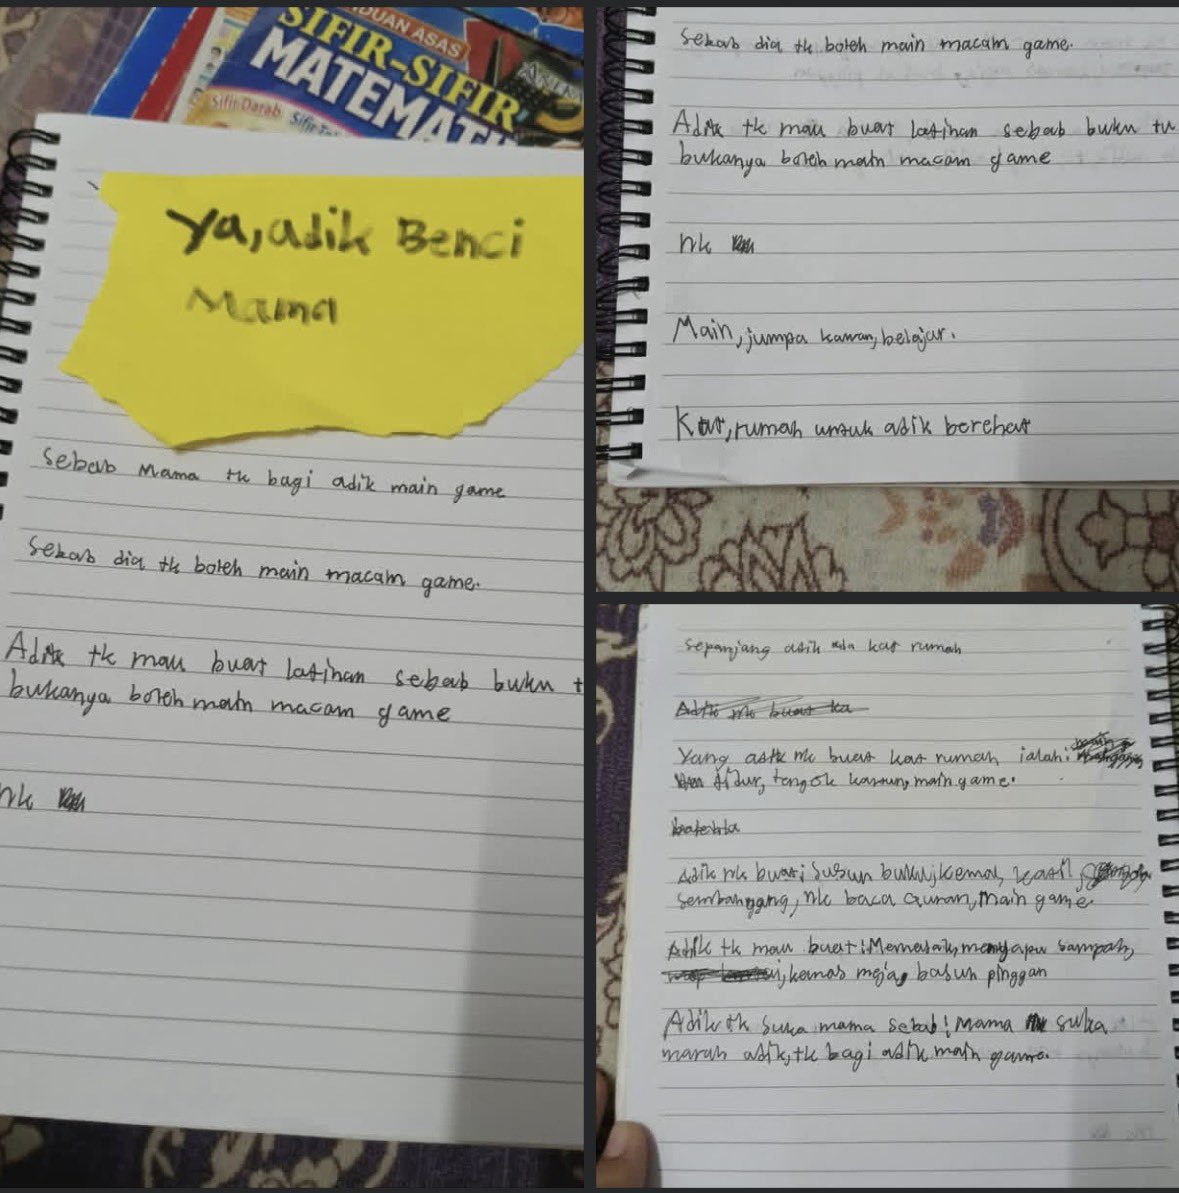 DUAN ASAS
SIFIR-SIFIR
MATEMAT
Sifir Darab Sifir
Ya, adik Benci
Mama
Sebab Mama tk bagi adik main game
Sebab dia tk boleh main macam game.
Adik tk mau buat latihan sebab buku t
bukanya boleh main macam game
nk
Sebab dia tk boleh main macam game.
Adik tk mau buat latihan sebab buku tu
bukanya boleh main macam game
nk
Main, jumpa kawan, belajar.
Kat, rumah untuk adik berehat
Sepanjang adik ada kat rumah
Adik nk buat ka
Yang adik nk buat kat rumah ialah: main
tidur, tengok kartun, main game.
Adik nk buat: Susun buku, kemas,
sembahyang, nk baca Quran, main game.
Adik tk mau buat: Memasak, menyapu sampah,
kemas meja, basuh pinggan
Adik tk suka mama sebab: Mama suka
marah adik, tk bagi adik main game.